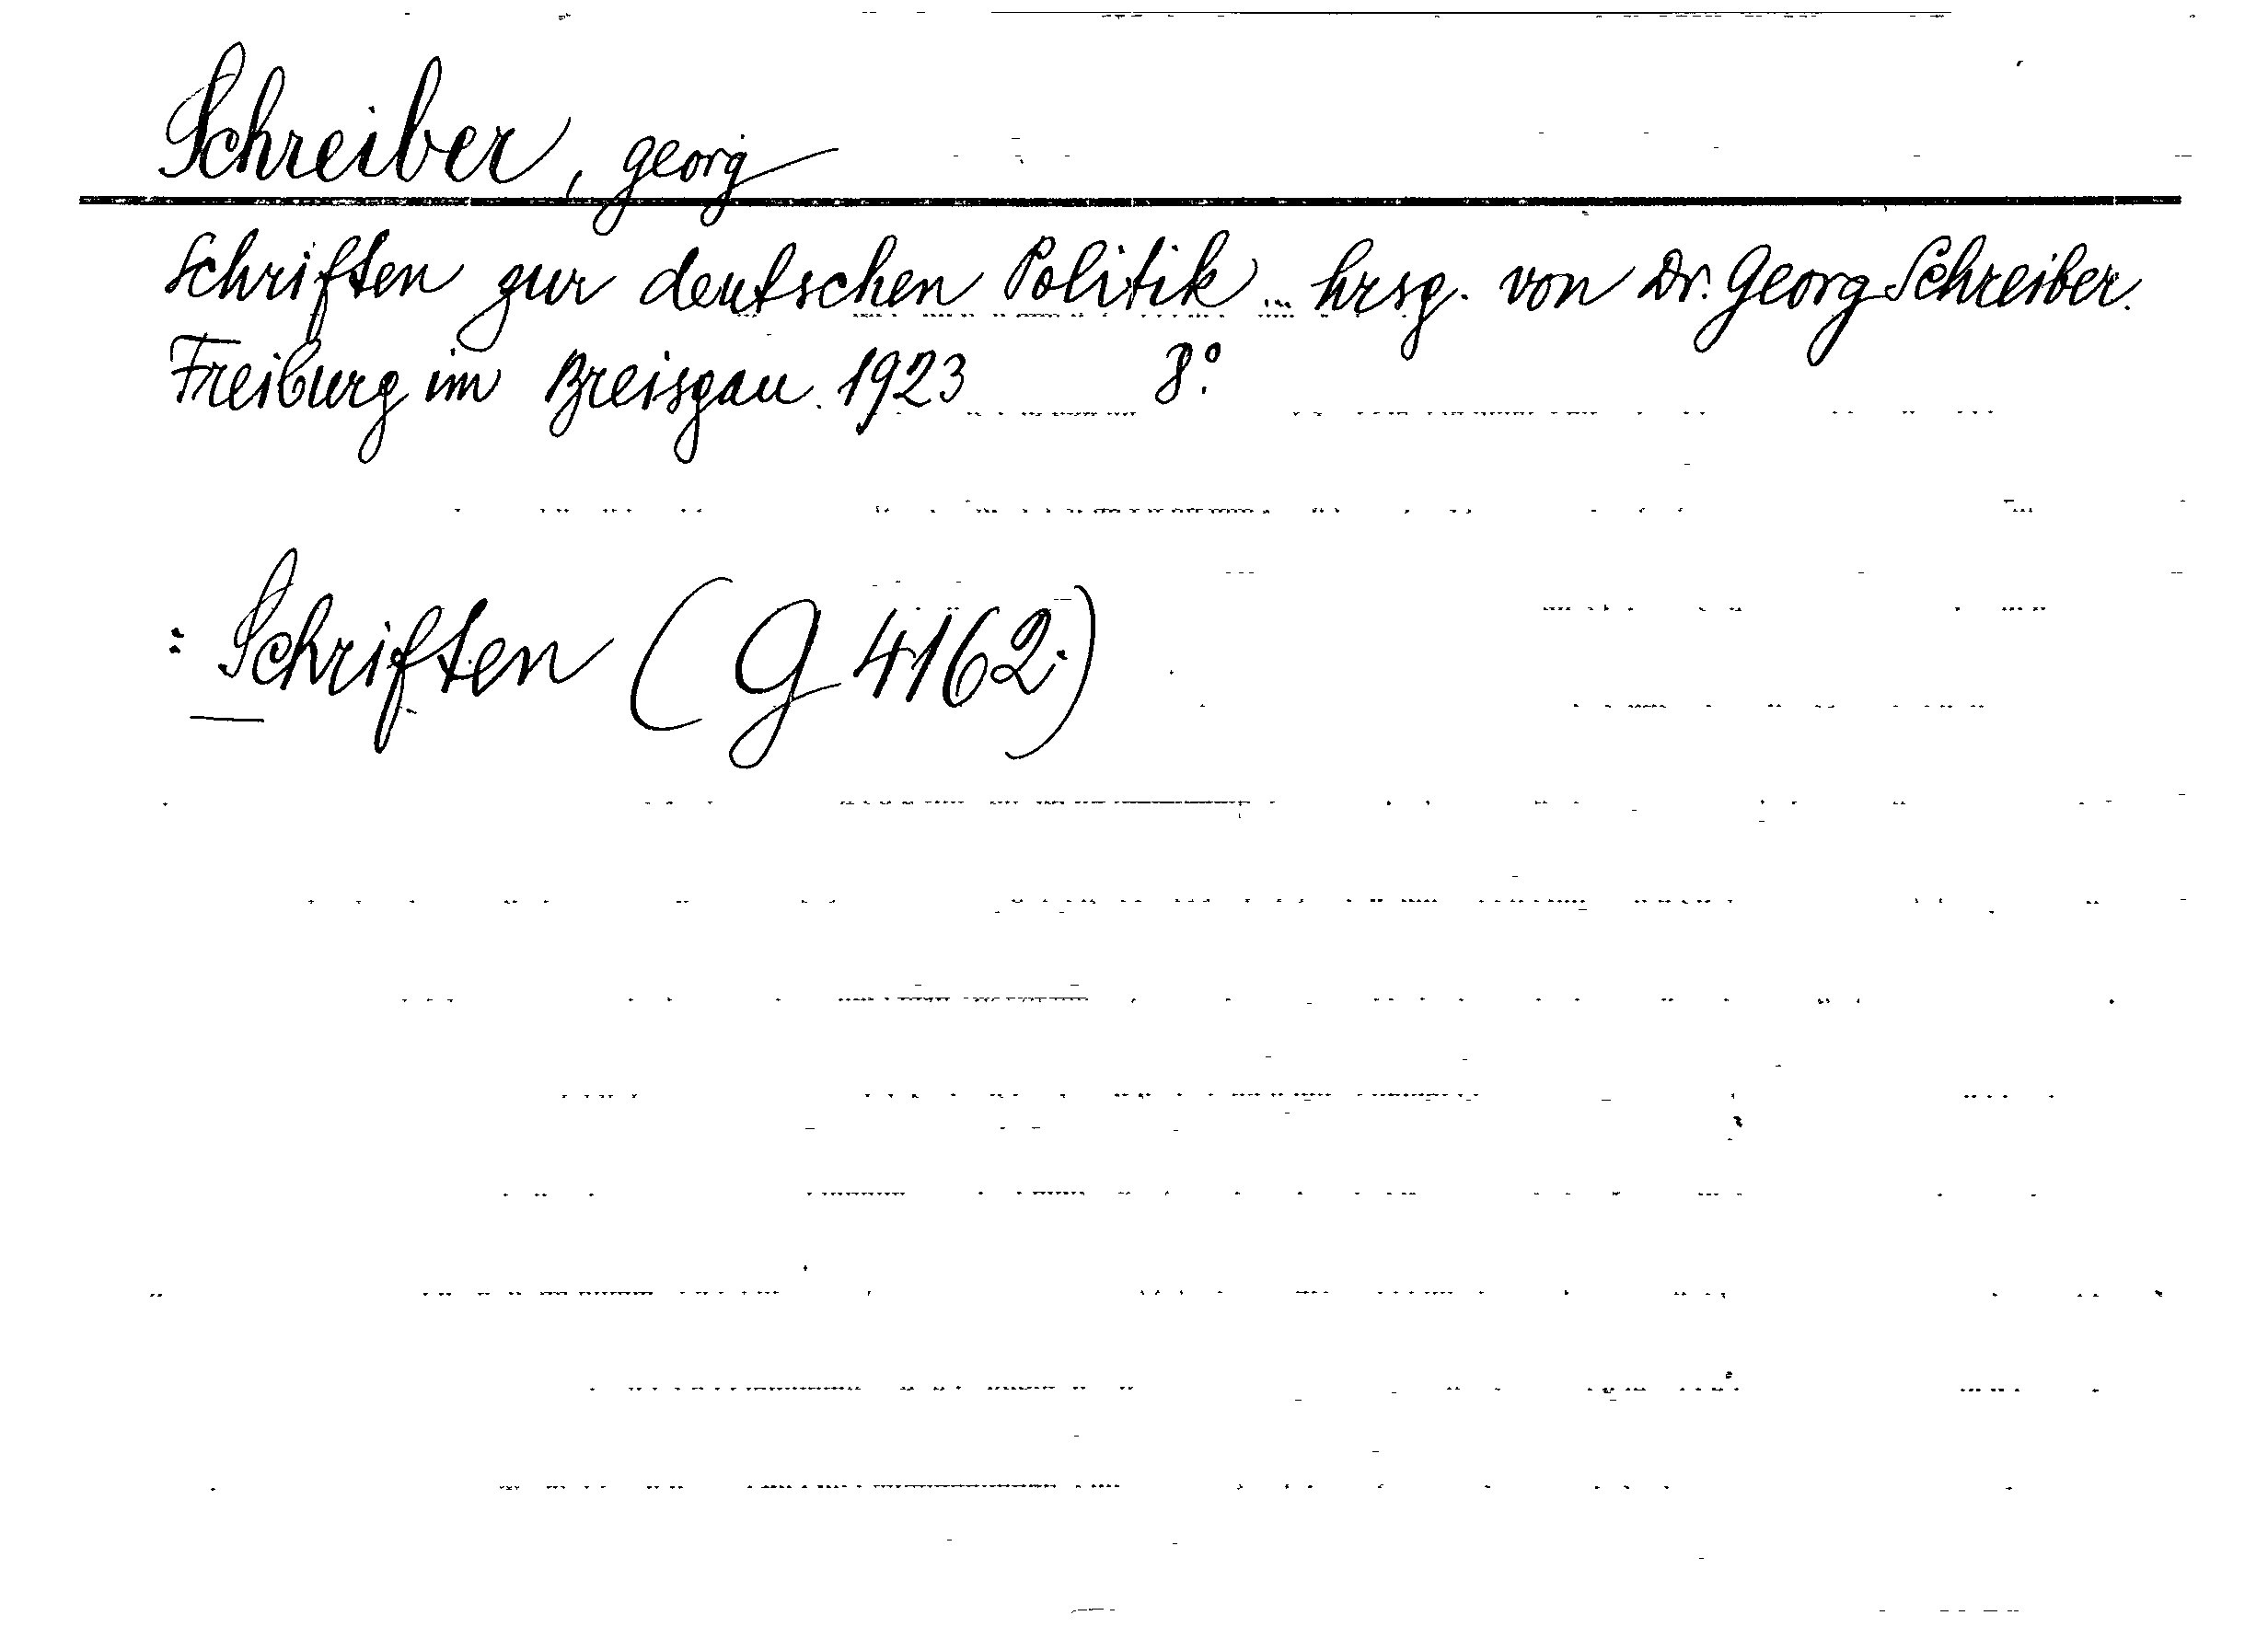 Schreiber, Georg
Schriften zur deutschen Politik ... hrsg. von Dr. Georg Schreiber.
Freiburg im Breisgau. 1923 8°.
: Schriften (G 4162.)